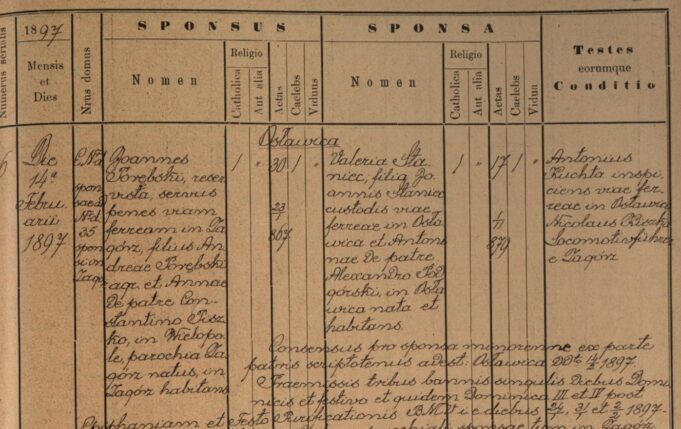 Numerus serialis
1897
Mensis
et
Dies
Nrus domus
SPONSUS
Nomen
Religio
Catholica
Aut alia
Aetas
Caelebs
Viduus
SPONSA
Nomen
Religio
Catholica
Aut alia
Aetas
Caelebs
Vidua
Testes
eorumque
Conditio
Osławica
Die
14a
Febru
arii
1897
spon
sae
Nd.
35
spon
si in
Zagór
Joannes
Torębski, reser
vista, servus
penes viam
ferream in Za
górz, filius An
dreae Torębski
agr. et Annae
de patre Con
stantino Tisz
ko, in Wielopo
le, parochia Za
górz natus, in
Zagórz habitans
1 " 30 1
23
1
867
Valeria Sta
niec, filia Jo
annis Staniec
custodis viae
ferreae in Osła
wica et Anton
nae de patre
Alexandro
górski, in Osła
wica nata et
habitans.
1 " 17 1
879
Antonius
Kuchta inspi
ciens viae fer
reae in Osławica
Nicolaus
Locomotivführer
e Zagórz
Consensus pro sponsa minorenne ex parte
patris scriptotenus adest. Osławica 1897
Praemissis tribus bannis singulis diebus Domi
nicis et festivo et quidem Dominica III et IV post
Epiphaniam et Festo Purificationis B.M.V. i e diebus et 2/2 1897.